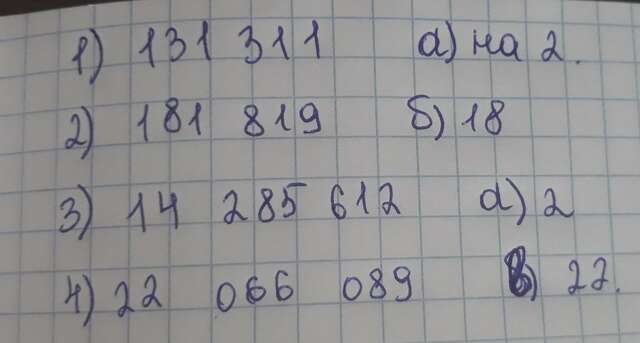 1) 131 311 а) на 2.
2) 181 819 б) 18
3) 14 285 612 а) 2
4) 22 066 089 в) 22.